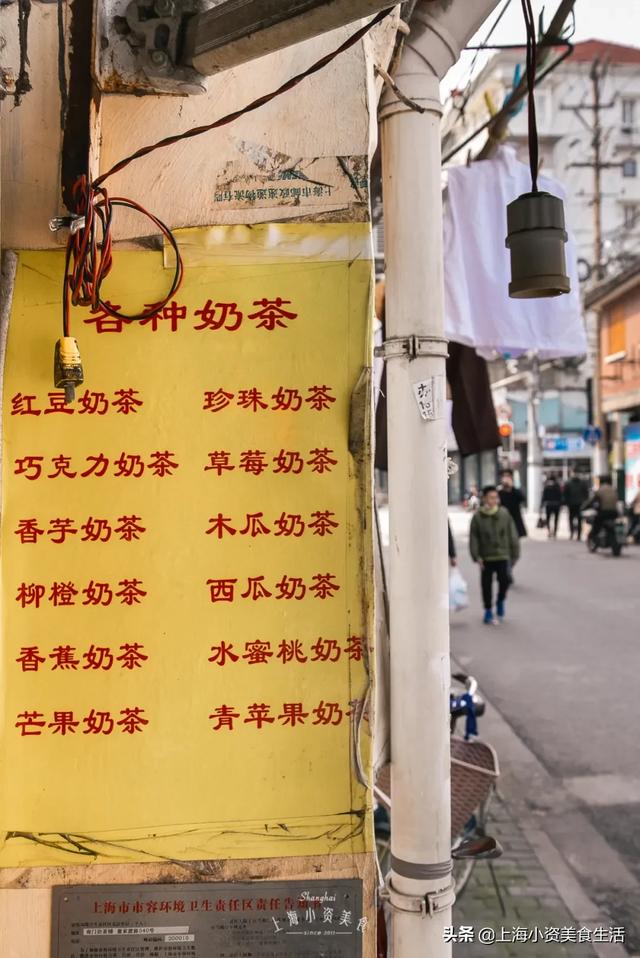 上海市邮政速递物流有限
各种奶茶
红豆奶茶 珍珠奶茶
巧克力奶茶 草莓奶茶
香芋奶茶 木瓜奶茶
柳橙奶茶 西瓜奶茶
香蕉奶茶 水蜜桃奶茶
芒果奶茶 青苹果奶茶
上海市市容环境卫生责任区责任告知书
200010
Shanghai
上海小资美食
SINCE 2011
头条 @上海小资美食生活